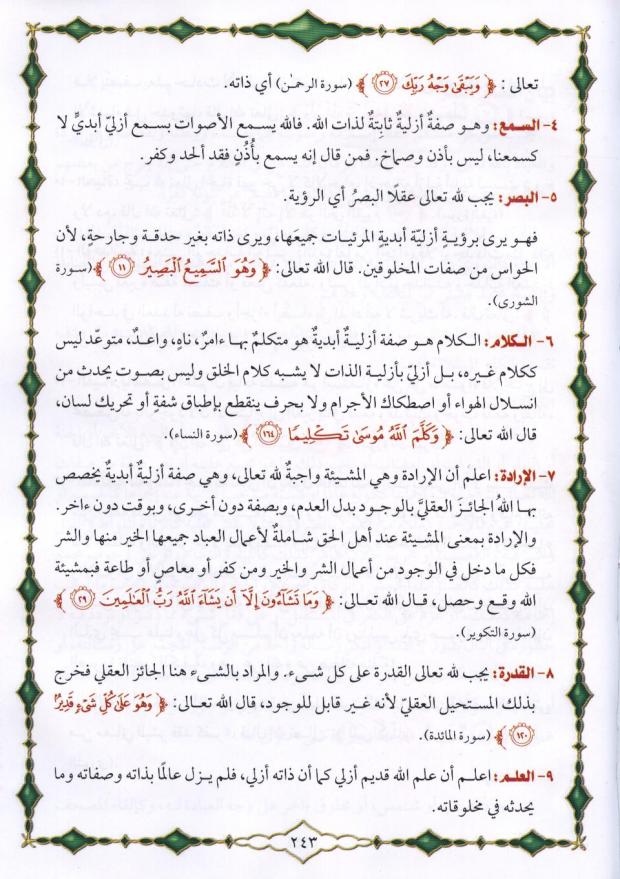 تعالى : ﴿ وَيَبْقَى وَجْهُ رَبِّكَ ٢٧ ﴾ (سورة الرحمٰن) أي ذاته.
٤- السمع: وهو صفةٌ أزليةٌ ثابتةٌ لذات الله. فالله يسمع الأصوات بسمع أزليّ أبديٍّ لا
كسمعنا، ليس بأذن وصماخ. فمن قال إنه يسمع بأُذُنٍ فقد ألحد وكفر.
٥- البصر: يجب لله تعالى عقلًا البصرُ أي الرؤية.
فهو يرى برؤيةٍ أزليّة أبديةٍ المرئيات جميعَها، ويرى ذاته بغير حدقة وجارحةٍ، لأن
الحواس من صفات المخلوقين. قال الله تعالى: ﴿ وَهُوَ السَّمِيعُ الْبَصِيرُ ١١ ﴾(سورة
الشورى).
٦- الكلام: الكلام هو صفة أزليةٌ أبديةٌ هو متكلمٌ بها ءامرٌ، ناهٍ، واعدٌ، متوعّد ليس
ككلام غيره، بل أزليّ بأزلية الذات لا يشبه كلام الخلق وليس بصوت يحدث من
انسلال الهواء أو اصطكاك الأجرام ولا بحرف ينقطع بإطباق شفةٍ أو تحريك لسان،
قال الله تعالى: ﴿ وَكَلَّمَ اللَّهُ مُوسَىٰ تَكْلِيمًا ١٦٤ ﴾ (سورة النساء).
٧- الإرادة: اعلم أن الإرادة وهي المشيئة واجبةٌ لله تعالى، وهي صفة أزليةٌ أبديةٌ يخصص
بها اللهُ الجائزَ العقليَّ بالوجود بدل العدم، وبصفة دون أخرى، وبوقت دون ءاخر.
والإرادة بمعنى المشيئة عند أهل الحق شاملةٌ لأعمال العباد جميعِها الخير منها والشر
فكل ما دخل في الوجود من أعمال الشر والخير ومن كفر أو معاصٍ أو طاعة فبمشيئة
الله وقع وحصل، قال الله تعالى: ﴿ وَمَا تَشَاءُونَ إِلَّا أَن يَشَاءَ اللَّهُ رَبُّ الْعَالَمِينَ ٢٩ ﴾
(سورة التكوير).
٨- القدرة: يجب لله تعالى القدرة على كل شىء. والمراد بالشىء هنا الجائز العقلي فخرج
بذلك المستحيل العقليّ لأنه غير قابل للوجود، قال الله تعالى: ﴿ وَهُوَ عَلَىٰ كُلِّ شَيْءٍ قَدِيرٌ
١٢٠ ﴾ (سورة المائدة).
٩- العلم: اعلم أن علم الله قديم أزلي كما أن ذاته أزلي، فلم يزل عالمًا بذاته وصفاته وما
يحدثه في مخلوقاته.
٢٤٣